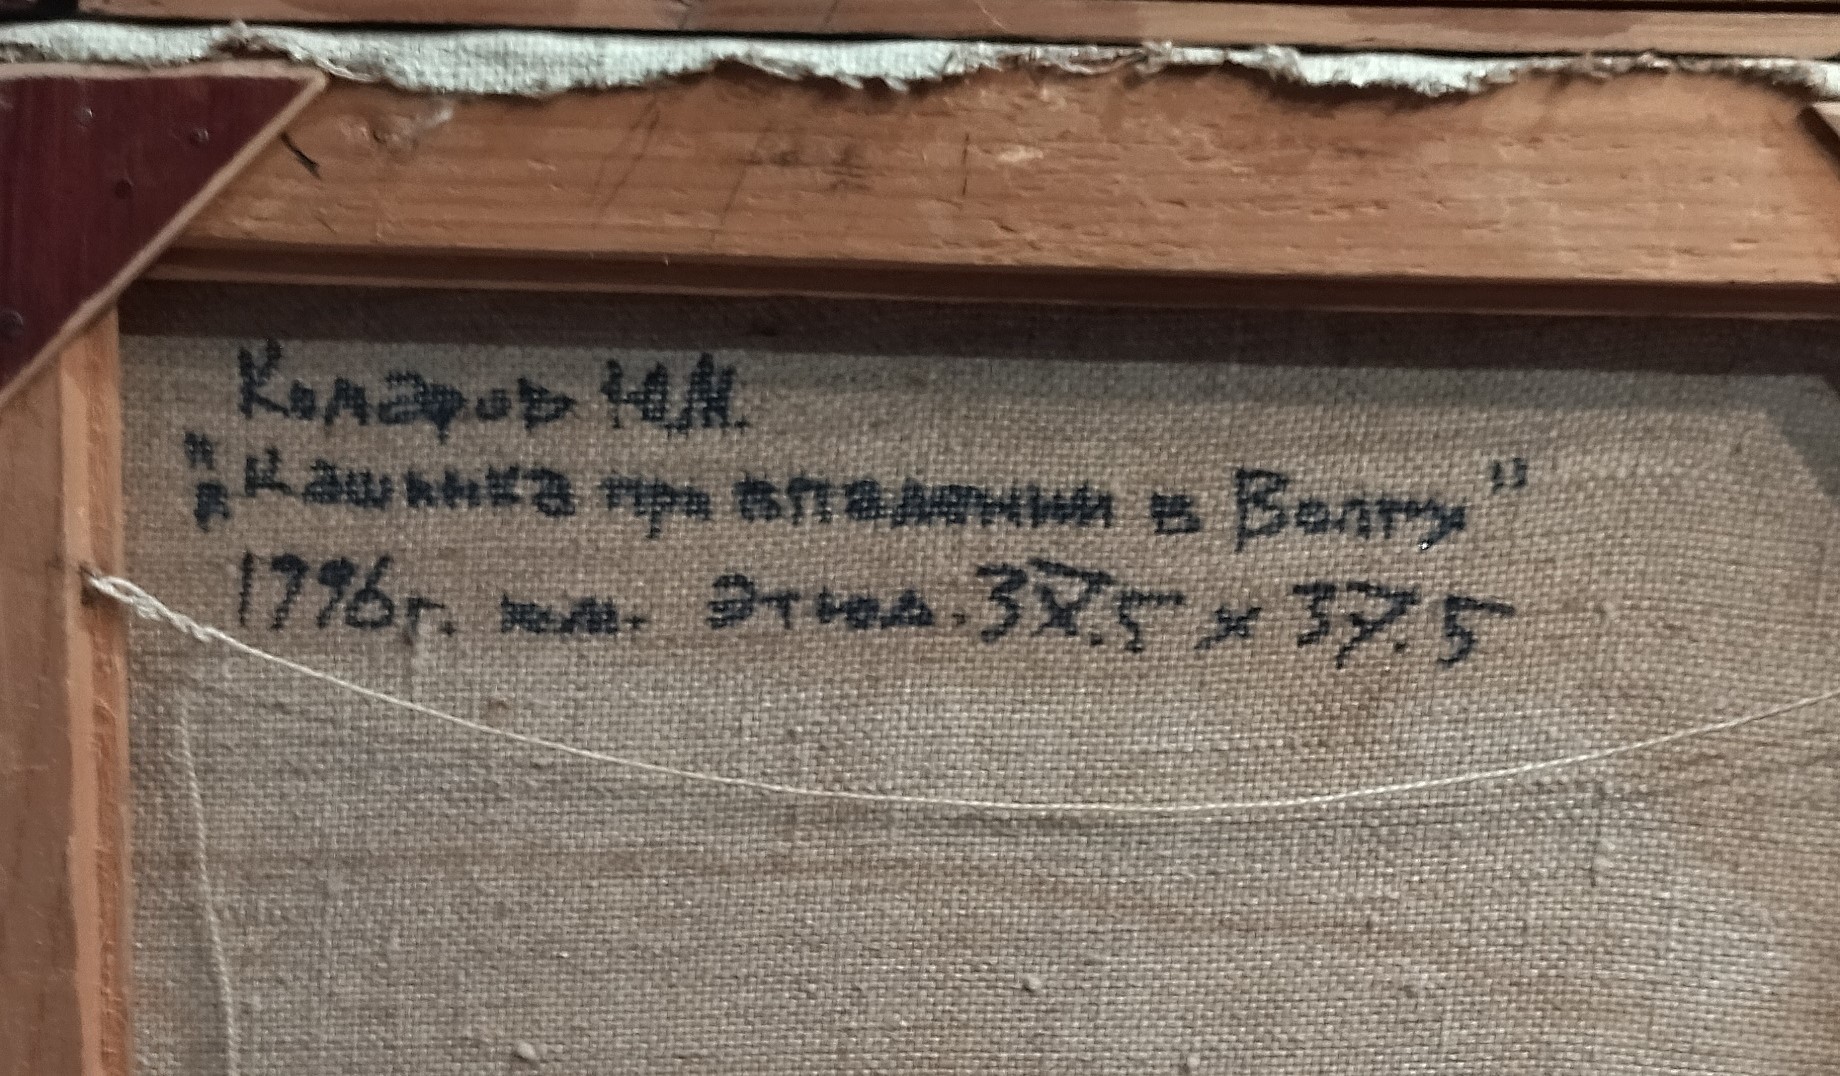 Комаров Ю.М.
"Р. Кашинка при впадении в Волгу"
1996г. хол. Этюд. 37.5 х 37.5